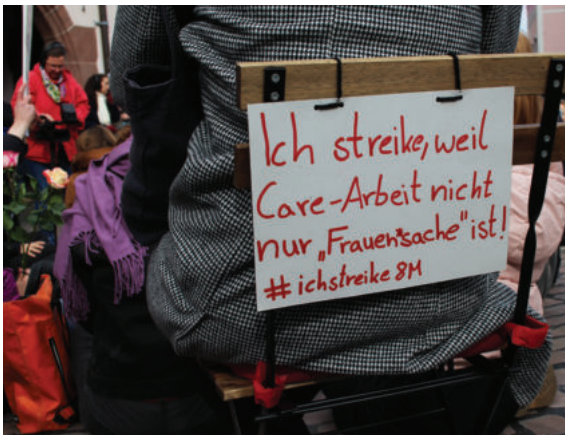 Ich streike, weil
Care-Arbeit nicht
nur „Frauen*sache" ist!
#ichstreike 8M